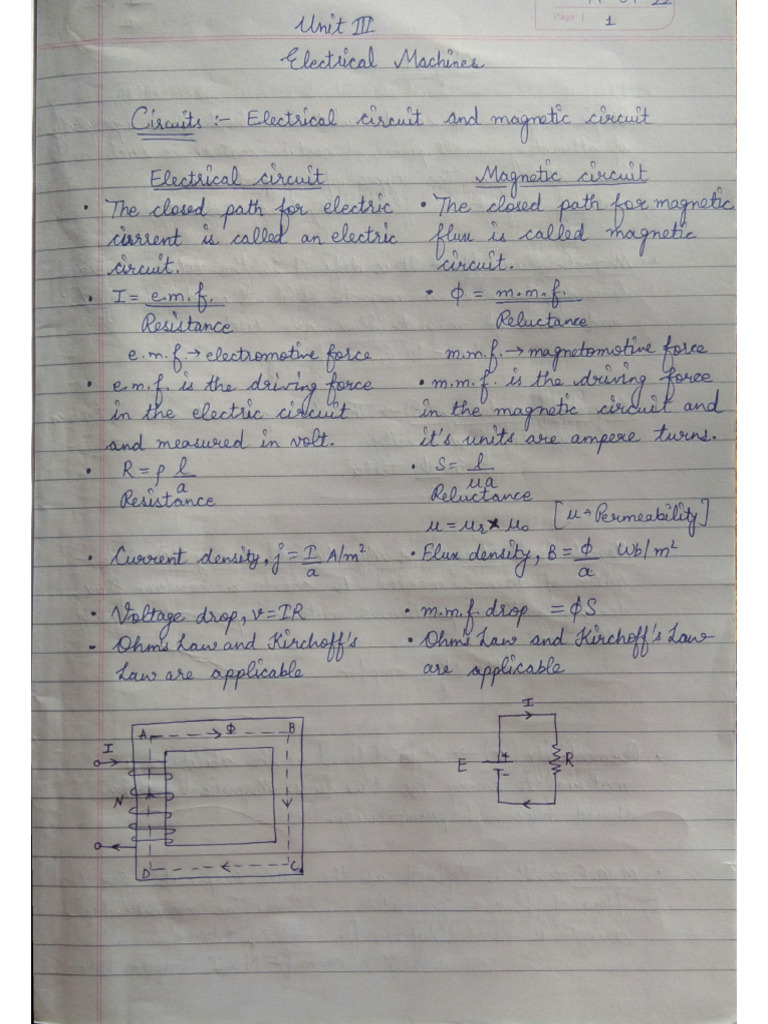 Page
1
Unit III
Electrical Machines
Circuits :- Electrical circuit and magnetic circuit
Electrical circuit
• The closed path for electric
current is called an electric
circuit.
• I = e.m.f.
Resistance
e.m.f. → electromotive force
• e.m.f. is the driving force
in the electric circuit
and measured in volt.
• R = ρ l
a
Resistance
• Current density, j = I A/m²
a
• Voltage drop, v = IR
• Ohm's Law and Kirchoff's
Law are applicable
Magnetic circuit
• The closed path for magnetic
flux is called magnetic
circuit.
• ϕ = m.m.f.
Reluctance
m.m.f. → magnetomotive force
• m.m.f. is the driving force
in the magnetic circuit and
it's units are ampere turns.
• S = l
μa
Reluctance
μ = μr × μo [μ → Permeability]
• Flux density, B = ϕ Wb/m²
a
• m.m.f. drop = ϕS
• Ohm's Law and Kirchoff's Law
are applicable
A ϕ B
I
N
D C
I
E + R
-